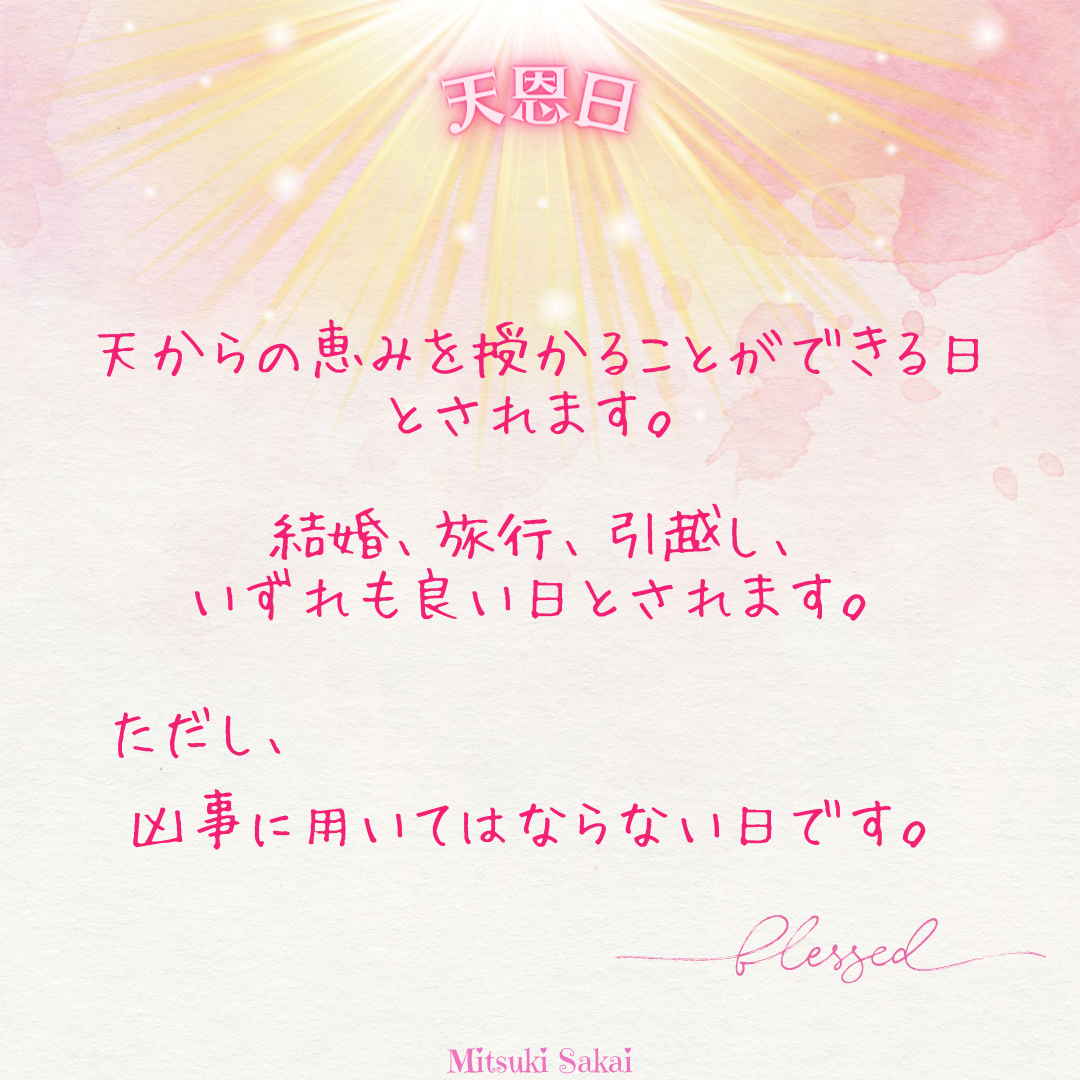 天恩日
天からの恵みを授かることができる日
とされます。
結婚、旅行、引越し、
いずれも良い日とされます。
ただし、
凶事に用いてはならない日です。
Blessed
Mitsuki Sakai